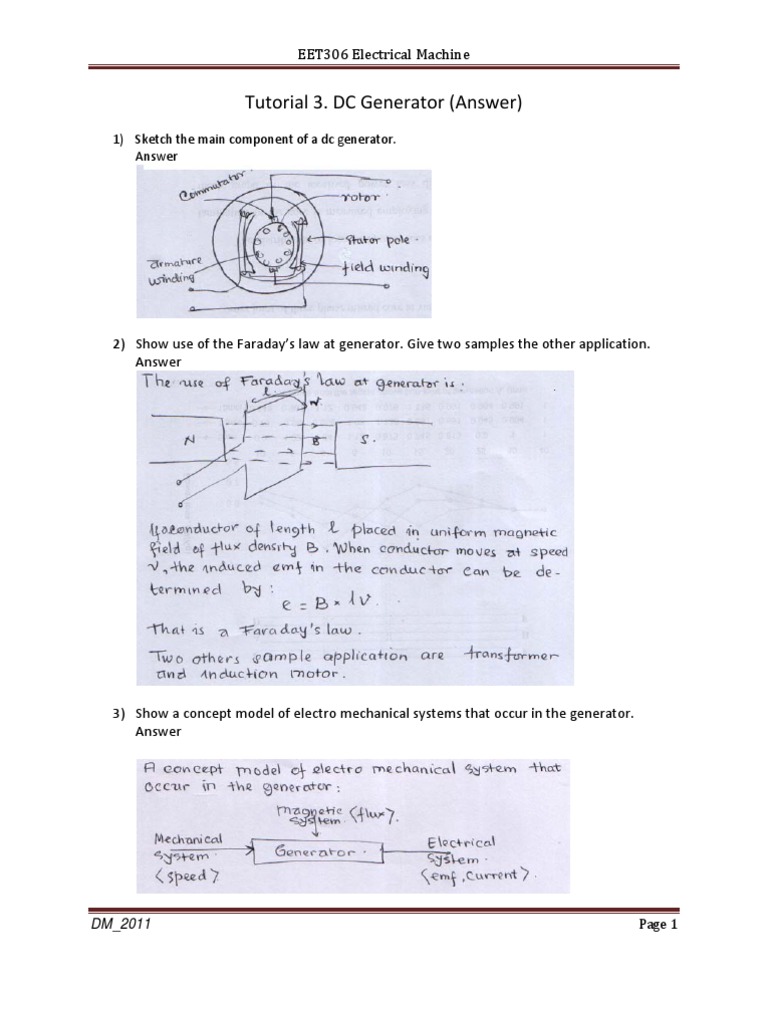 EET306 Electrical Machine
Tutorial 3. DC Generator (Answer)
1) Sketch the main component of a dc generator.
Answer
Commutator.
rotor.
stator pole.
armature
winding
field winding
2) Show use of the Faraday's law at generator. Give two samples the other application.
Answer
The use of Faraday's law at generator is.
l
N
B
S.
conductor of length l placed in uniform magnetic
field of flux density B. When conductor moves at speed
v, the induced emf in the conductor can be de-
termined by:
e = B * l v.
That is a Faraday's law.
Two others sample application are transformer
and induction motor.
3) Show a concept model of electro mechanical systems that occur in the generator.
Answer
A concept model of electro mechanical system that
occur in the generator:
magnetic
system. <flux>.
Mechanical
system.
<speed>
Generator.
Electrical
system.
<emf, current>.
DM_2011
Page 1